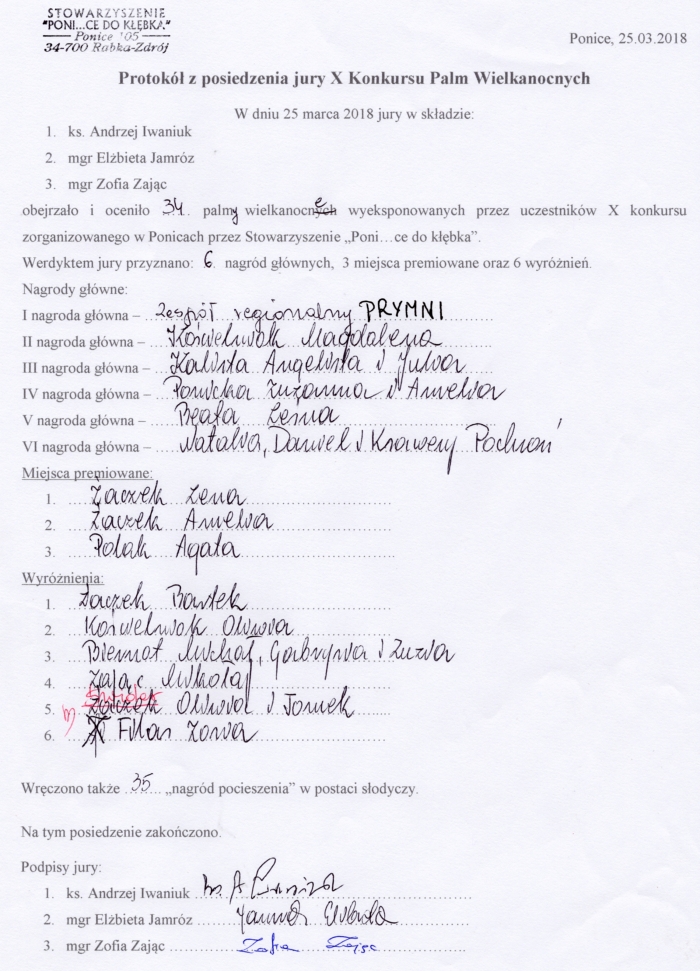 STOWARZYSZENIE
"PONI...CE DO KŁĘBKA."
Ponice 105
34-700 Rabka-Zdrój
Ponice, 25.03.2018
Protokół z posiedzenia jury X Konkursu Palm Wielkanocnych
W dniu 25 marca 2018 jury w składzie:
1. ks. Andrzej Iwaniuk
2. mgr Elżbieta Jamróz
3. mgr Zofia Zając
obejrzało i oceniło 34 palmy wielkanocne wyeksponowanych przez uczestników X konkursu
zorganizowanego w Ponicach przez Stowarzyszenie „Poni…ce do kłębka”.
Werdyktem jury przyznano: 6 nagród głównych, 3 miejsca premiowane oraz 6 wyróżnień.
Nagrody główne:
I nagroda główna – Zespół regionalny PRYMNI
II nagroda główna – Magdalena
III nagroda główna – Kalista Angelika i Julia
IV nagroda główna – Zuzanna i Amelia
V nagroda główna – Beata Lenia
VI nagroda główna – Natalia, Daniel i Ksawery Pachoń
Miejsca premiowane:
1. Żaczek Lena
2. Żaczek Amelia
3. Polak Agata
Wyróżnienia:
1. Żaczek Bartek
2. Oliwia
3. Biernat Michał, Gabrysia i Zuzia
4. Zając Mikołaj
5. Oliwia i Tomek
6. Filas Zosia
Wręczono także 35 „nagród pocieszenia” w postaci słodyczy.
Na tym posiedzenie zakończono.
Podpisy jury:
1. ks. Andrzej Iwaniuk
2. mgr Elżbieta Jamróz Jamróz Elżbieta
3. mgr Zofia Zając Zofia Zając